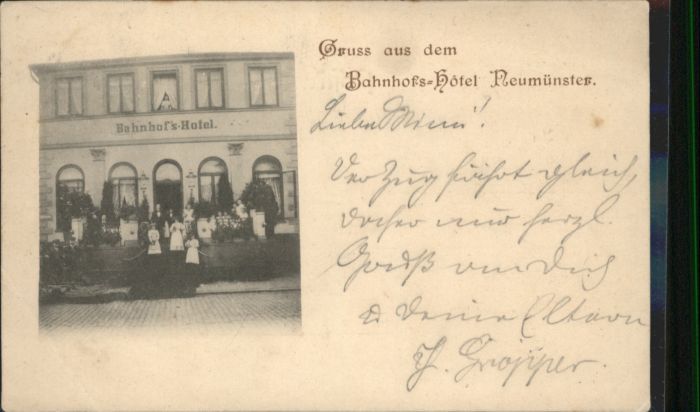 Gruss aus dem
Bahnhofs-Hôtel Neumünster.
Bahnhof's-Hotel.
Liebe Mimi!
Der Zug fährt gleich,
daher nur herzl.
Gruß an Dich
u. Deine Eltern
Gropper.